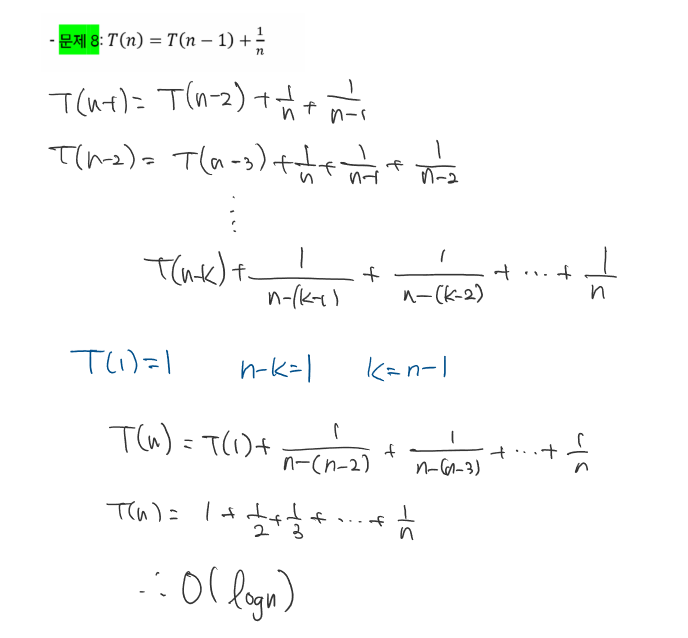 - 문제 8: T(n) = T(n − 1) + 1/n
T(n-1) = T(n-2) + 1/n + 1/(n-1)
T(n-2) = T(n-3) + 1/n + 1/(n-1) + 1/(n-2)
⋮
T(n-k) + 1/(n-(k-1)) + 1/(n-(k-2)) + ... + 1/n
T(1) = 1 n-k=1 k=n-1
T(n) = T(1) + 1/(n-(n-2)) + 1/(n-(n-3)) + ... + 1/n
T(n) = 1 + 1/2 + 1/3 + ... + 1/n
∴ O(logn)